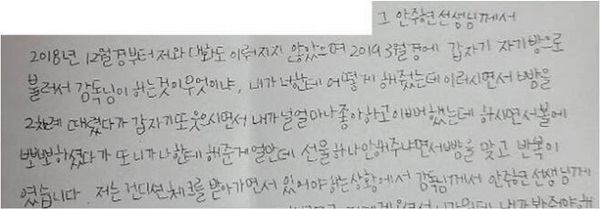 그 안주현선생님께서
2018년 12월경부터 저와 대화도 이뤄지지 않았으며 2019 3월경에 갑자기 자기방으로
불러서 감독님이 하는것이무엇이냐, 내가 어떻게 해줬는데 이러시면서 뺨을
2차례 때렸다가 갑자기또웃으시면서 내가널얼마나좋아하고이뻐했는데 하시면서볼에
뽀뽀하셨다가 또 니가나한데 해준게얼만데 선물하나안해주냐면서뺨을 맞고 반복이
였습니다. 저는 컨디션체크를 받아가면서 있어야하는상황에서 감독님께서 안주현선생님께